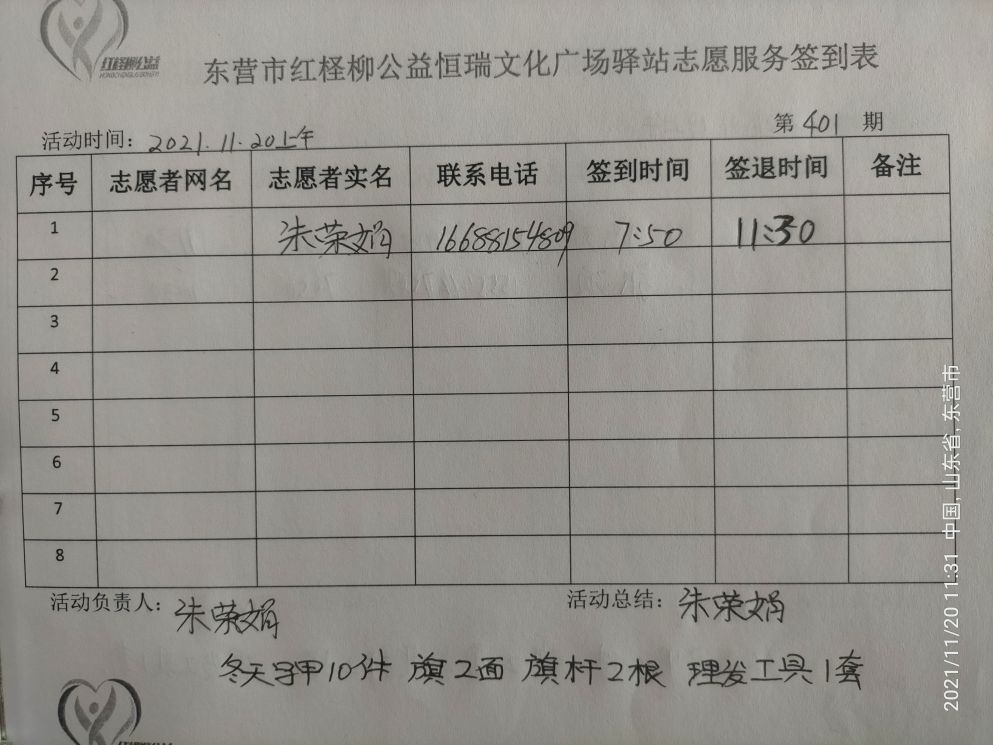 红柽柳公益
HONGCHENGLIUGONGYI
东营市红柽柳公益恒瑞文化广场驿站志愿服务签到表
活动时间：2021.11.20上午 第401期
序号 志愿者网名 志愿者实名 联系电话 签到时间 签退时间 备注
1 朱荣娟 16688154809 7:50 11:30
2
3
4
5
6
7
8
活动负责人：朱荣娟 活动总结：朱荣娟
冬天马甲10件 旗2面 旗杆2根 理发工具1套
2021/11/20 11:31 中国, 山东省, 东营市